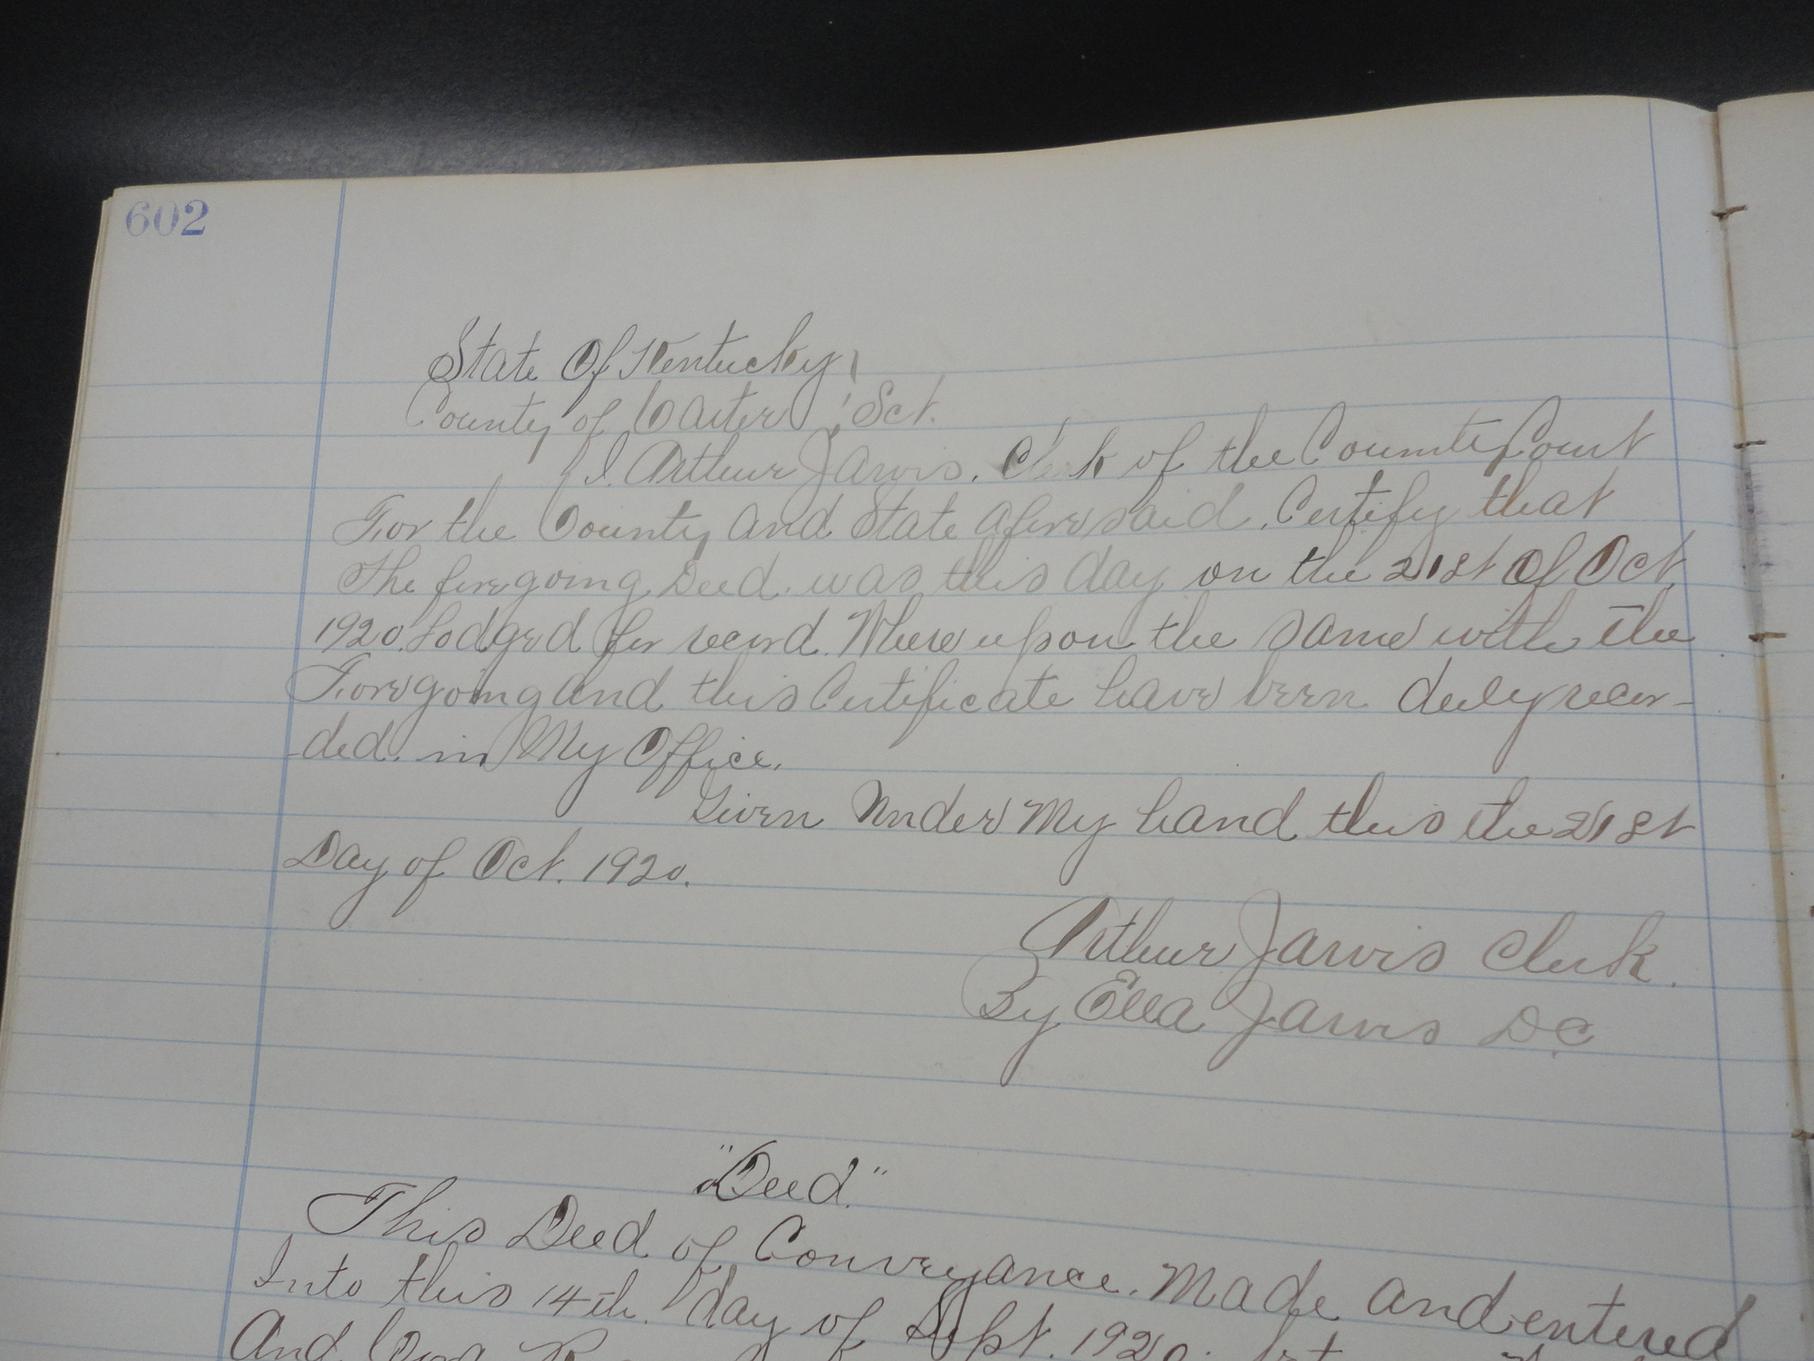 602
State Of Kentucky
County of Carter, Sct.
I Arthur Jarvis. Clerk of the County Court
For the County and State aforesaid. Certify that
The foregoing Deed. was this day on the 21st Of Oct
1920. Lodged for record. Where upon the same with the
Foregoing and this Certificate have been duly recor-
-ded. in My Office.
Given Under My hand this the 21st
Day of Oct. 1920.
Arthur Jarvis Clerk.
By Ella Jarvis D.C
"Deed."
This Deed of Conveyance. Made and entered
Into this 14th. day of Sept. 1920.
And